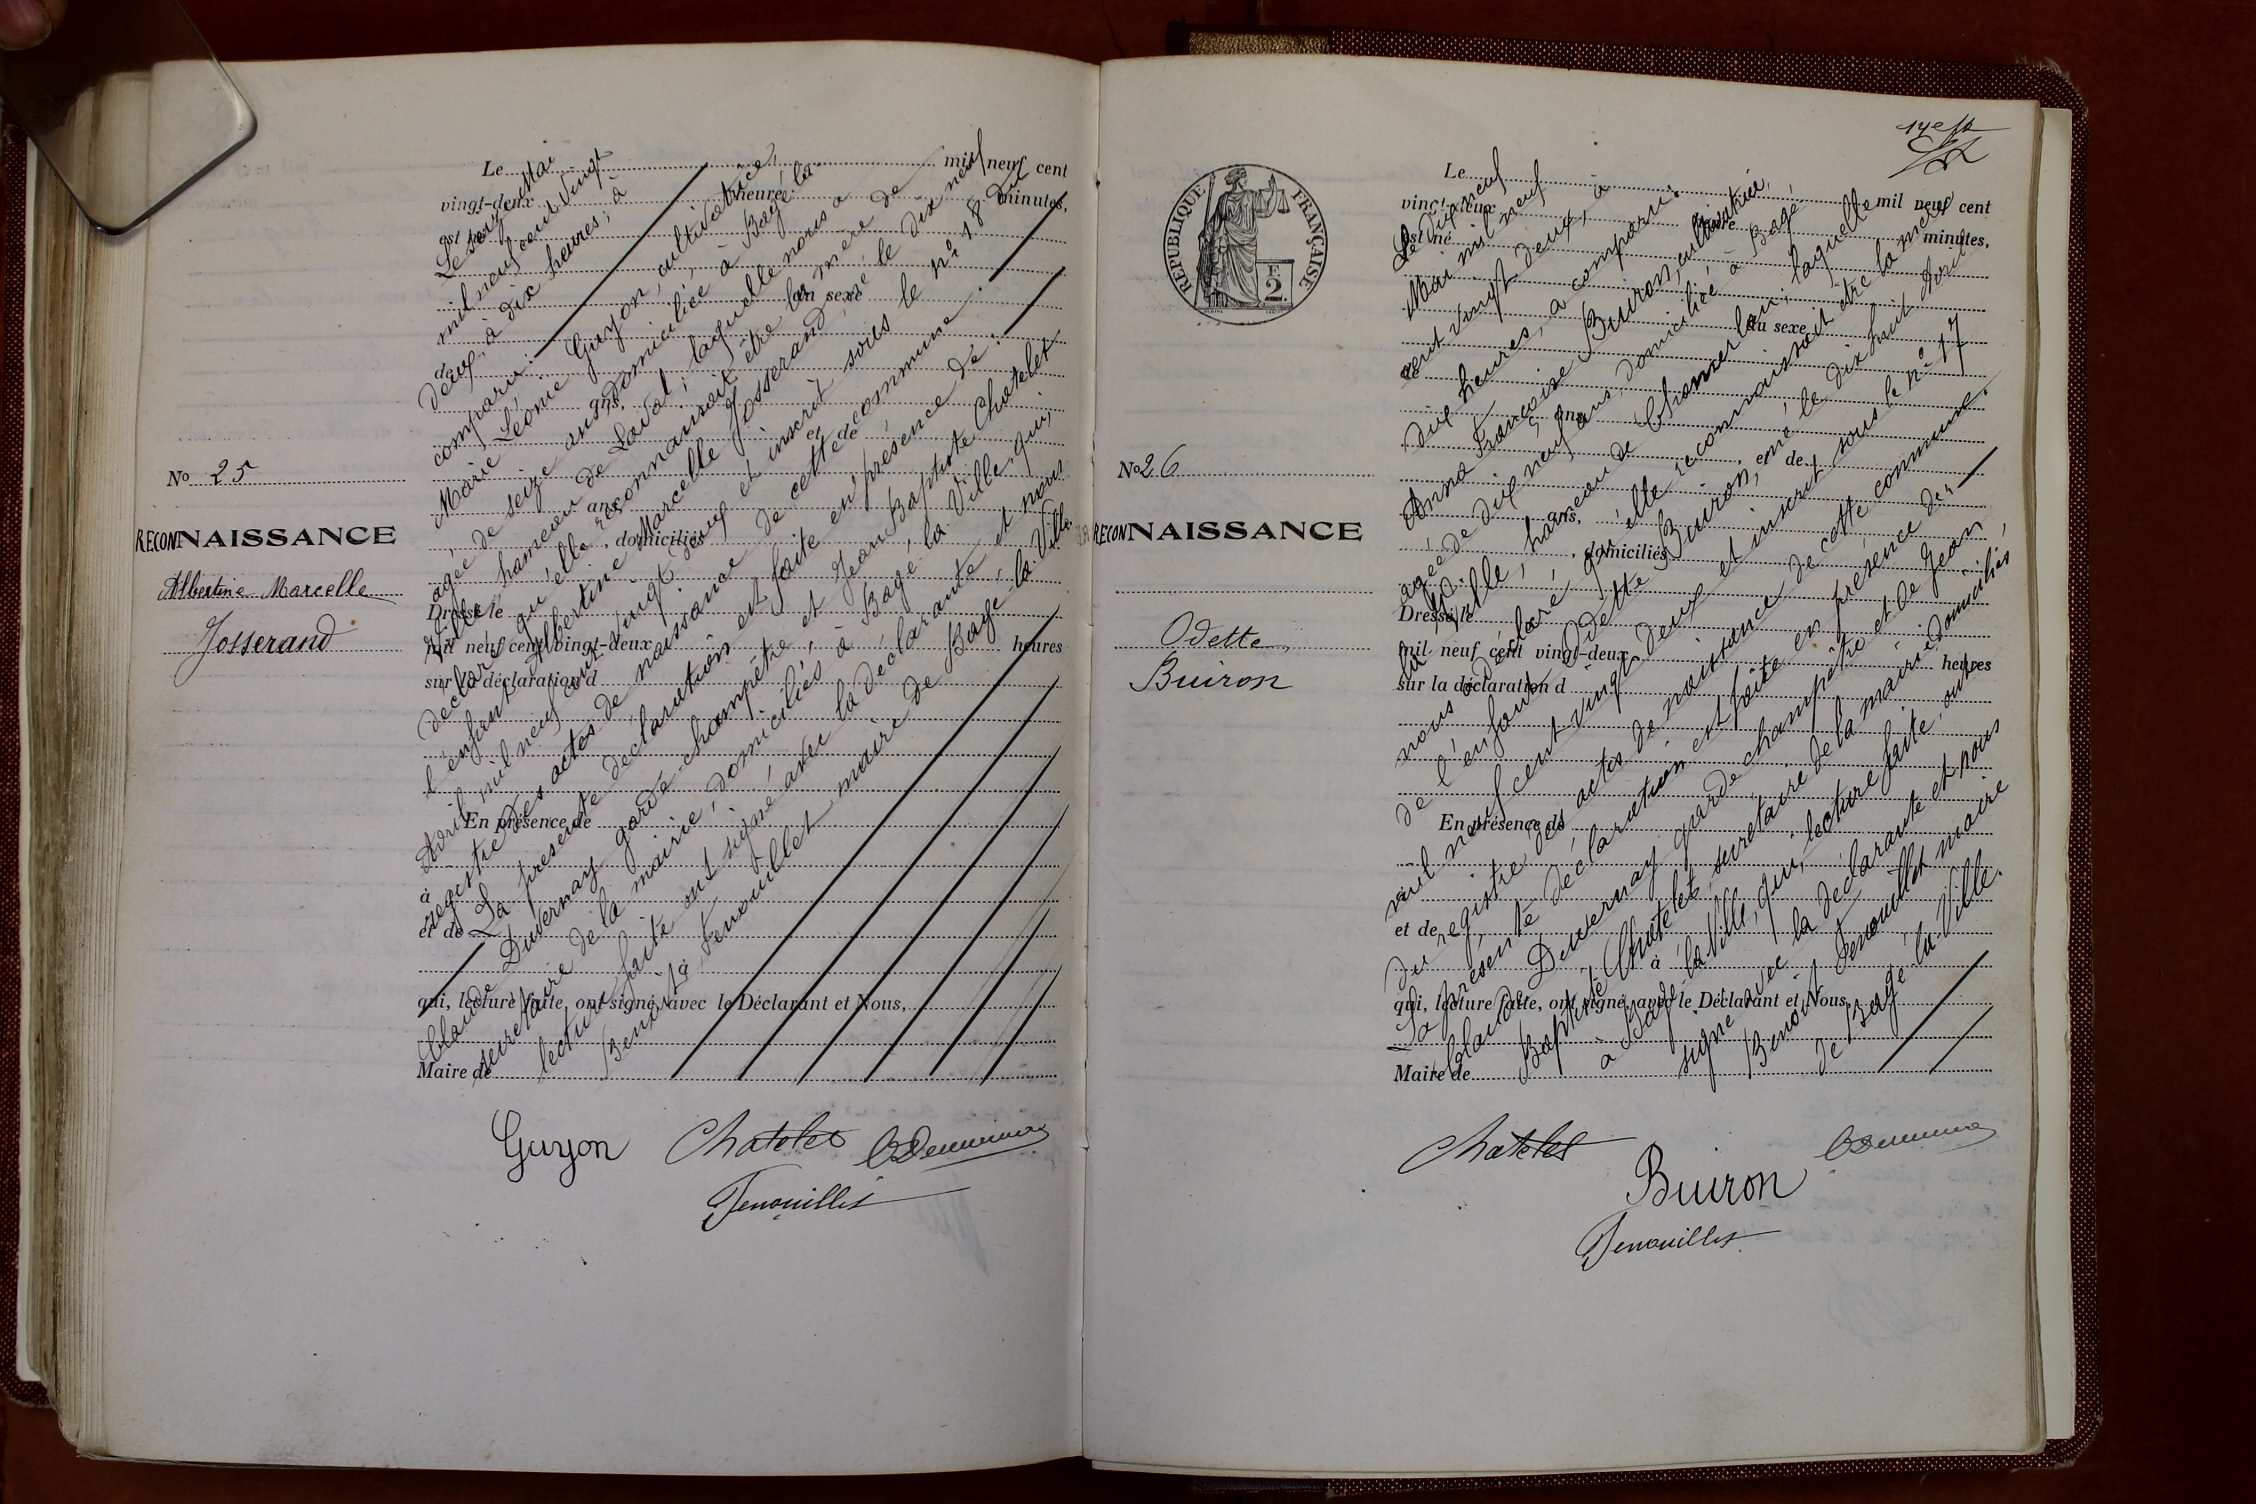 No 25
RECONNAISSANCE
Albertine Marcelle
Josserand
Le mil neuf cent
vingt-deux heure minutes,
est né
du sexe
de
ans,
et de
ans,
, domiciliés
Dressé le
mil neuf cent vingt-deux heures
sur la déclaration d
En présence de
à
et de
qui, lecture faite, ont signé avec le Déclarant et Nous,
Maire de
Le seize Mai
mil neuf cent vingt
deux, à dix heures, a
comparu
Marie Léonie Guyon, cultivatrice,
agée de seize ans domiciliée à Bagé-la-
Ville, hameau de Laval; laquelle nous a
déclaré qu'elle reconnaissait être la mère de
l'enfant Albertine Marcelle Josserand, né le dix neuf
Avril mil neuf cent vingt deux et inscrit sous le n° 18 du
registre des actes de naissance de cette commune.
La présente déclaration est faite en présence de:
Claude Duvernay garde-champêtre et Jean Baptiste Chatelet
secrétaire de la mairie, domiciliés à Bagé-la-Ville, qui,
lecture faite ont signé avec la déclarante et nous
Benoit Fenouillet maire de Bagé-la-Ville
Guyon Chatelet CDuvernay
Fenouillet
RÉPUBLIQUE FRANÇAISE
F.
2.
No 26
RECONNAISSANCE
Odette
Buiron
Le mil neuf cent
vingt-deux heure minutes,
est né
du sexe
de
ans,
et de
ans,
, domiciliés
Dressé le
mil neuf cent vingt-deux heures
sur la déclaration d
En présence de
à
et de
à
qui, lecture faite, ont signé avec le Déclarant et Nous,
Maire de
Le dix neuf
Mai mil neuf
cent vingt deux, à
dix heures, a comparu:
Anna Françoise Buiron, cultivatrice,
agée de dix neuf ans, domiciliée à Bagé-
la-Ville, hameau de; laquelle
nous a déclaré qu'elle reconnaissait être la mère
de l'enfant Odette Buiron, né le dix huit Avril
mil neuf cent vingt deux et inscrit sous le n° 17
du registre des actes de naissance de cette commune.
La présente déclaration est faite en présence de:
Claude Duvernay garde champêtre et de Jean
Baptiste Chatelet, secrétaire de la mairie domiciliés
à Bagé-la-Ville, qui, lecture faite, ont
signé avec la déclarante et nous
Benoit Fenouillet maire
de Bagé-la-Ville.
Chatelet CDuvernay
Buiron
Fenouillet